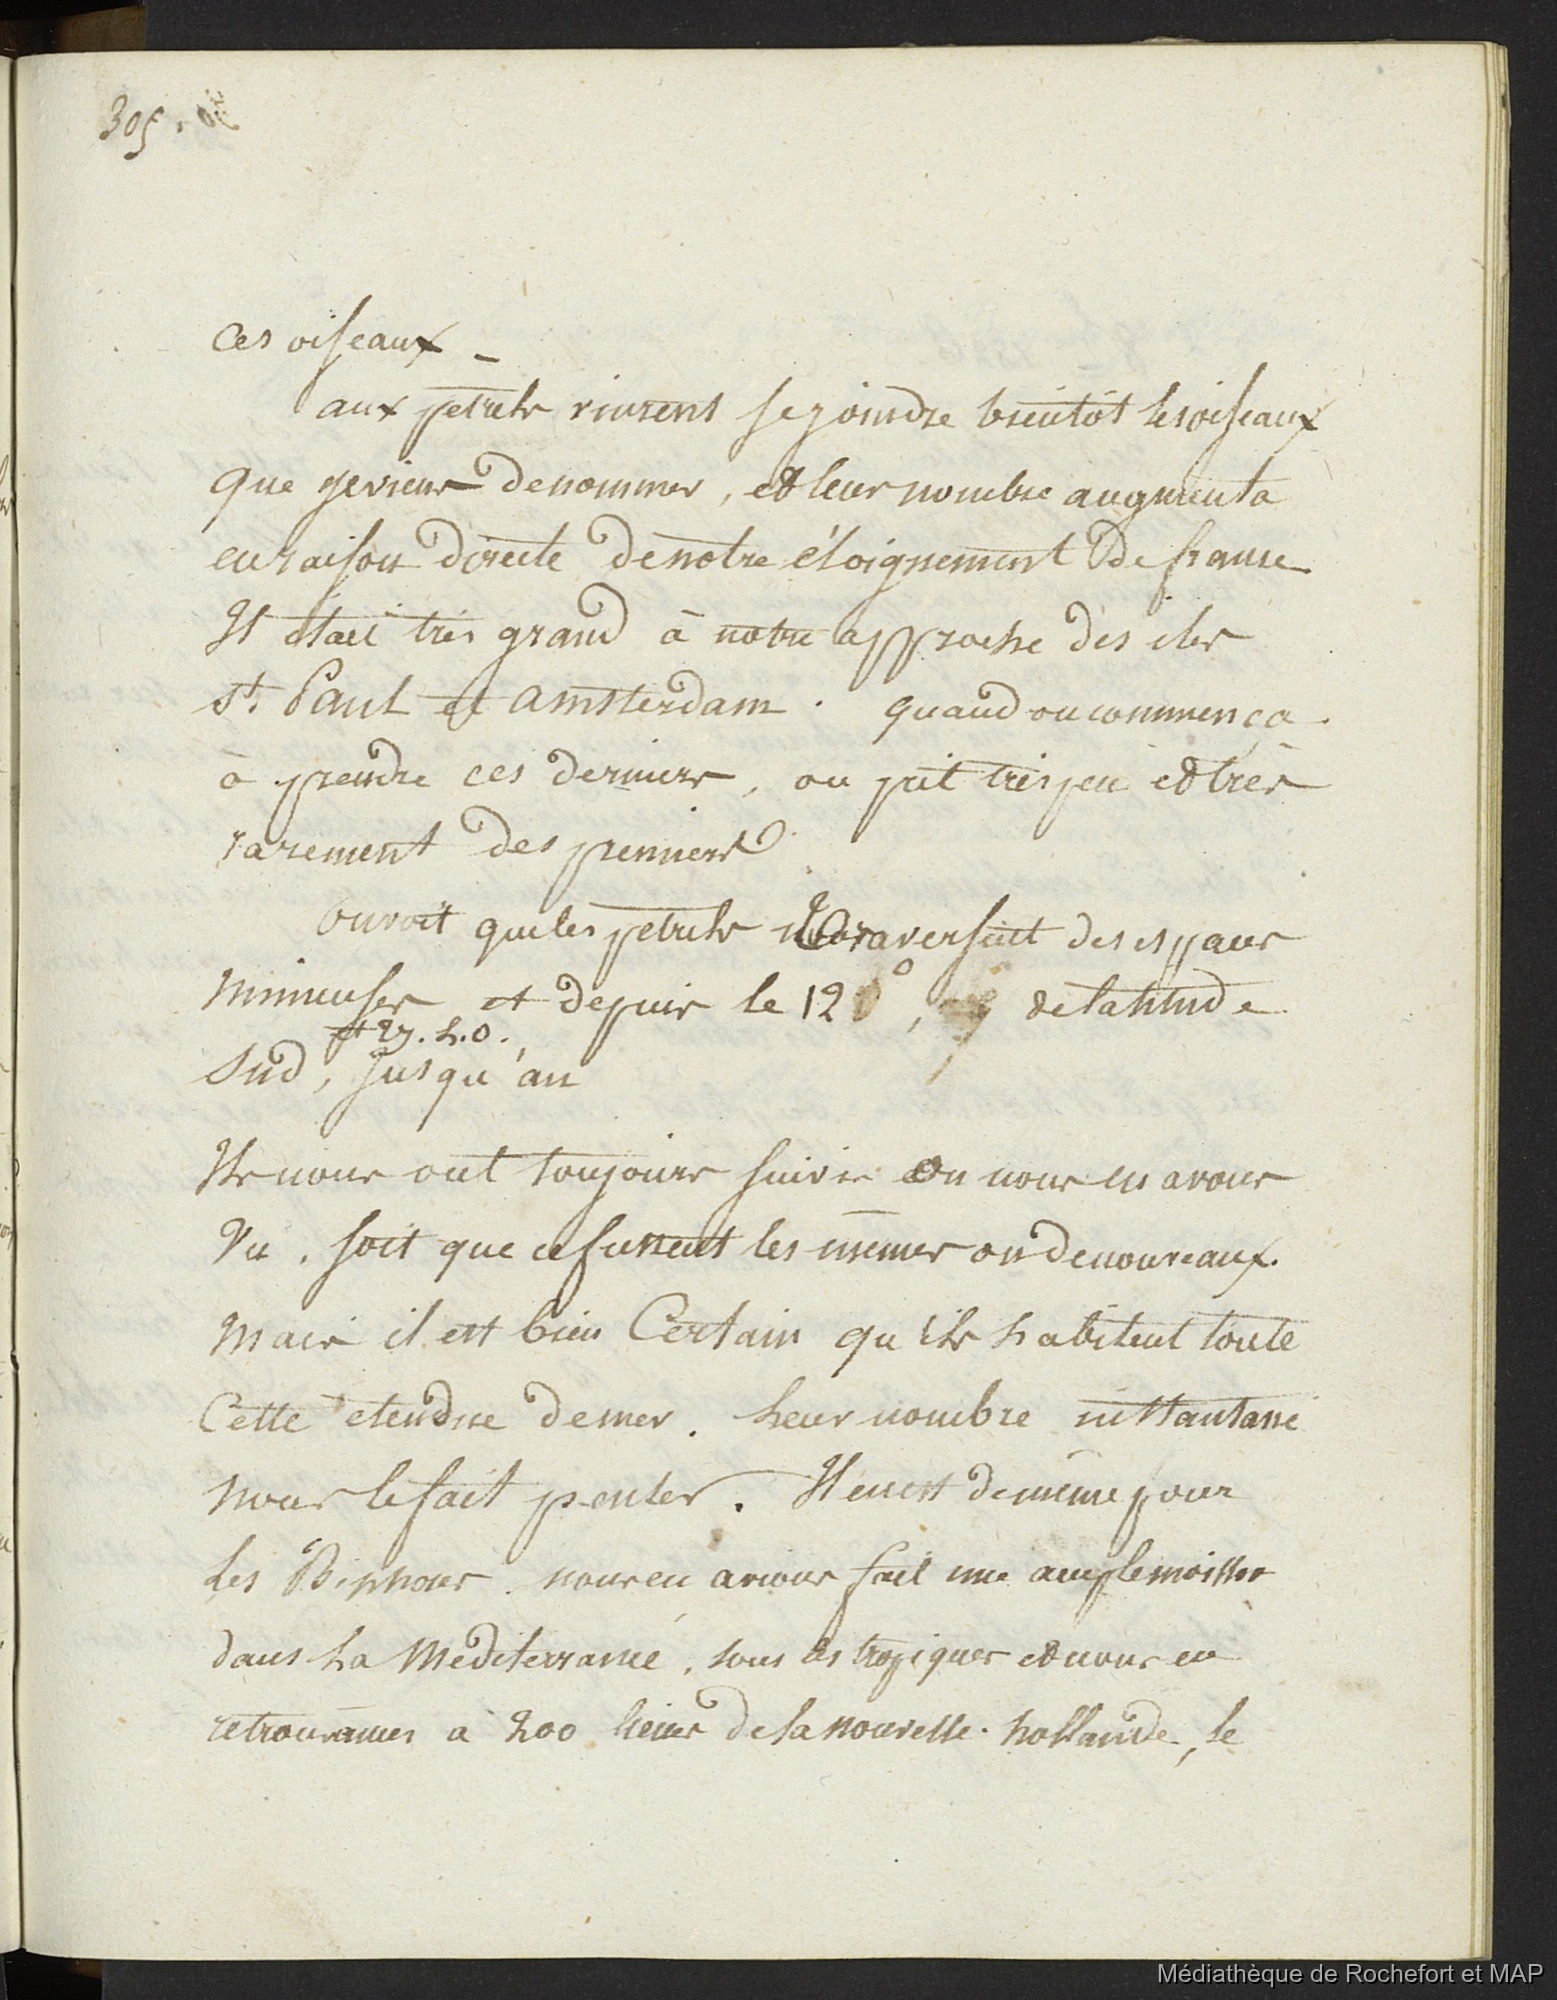 305.
ces oiseaux _
aux petrels vinrent se joindre bientôt les oiseaux
que je viens de nommer, et leur nombre augmenta
en raison directe de notre éloignement de france
Il était très grand à notre approche des iles
St. Paul et amsterdam. quand on commença
à prendre ces derniers, on prit très peu et très
rarement des premiers
On voit que les petrels traversent des espaces
immenses et depuis le 12°, de latitude
et 27. L.O.
Sud, jusqu'au
Ils nous ont toujours suivis ou nous en avons
vu. soit que ce fussent les mêmes ou de nouveaux.
Mais il est bien Certain qu'ils habitent toute
Cette etendue de mer. Leur nombre instantané
nous le fait penser. Il en est de même pour
les Biphores. nous en avions fait une ample moisson
dans La Mediterranée, sous les tropiques et nous en
retrouvâmes à 200 lieues de la nouvelle. hollande, le
Médiathèque de Rochefort et MAP